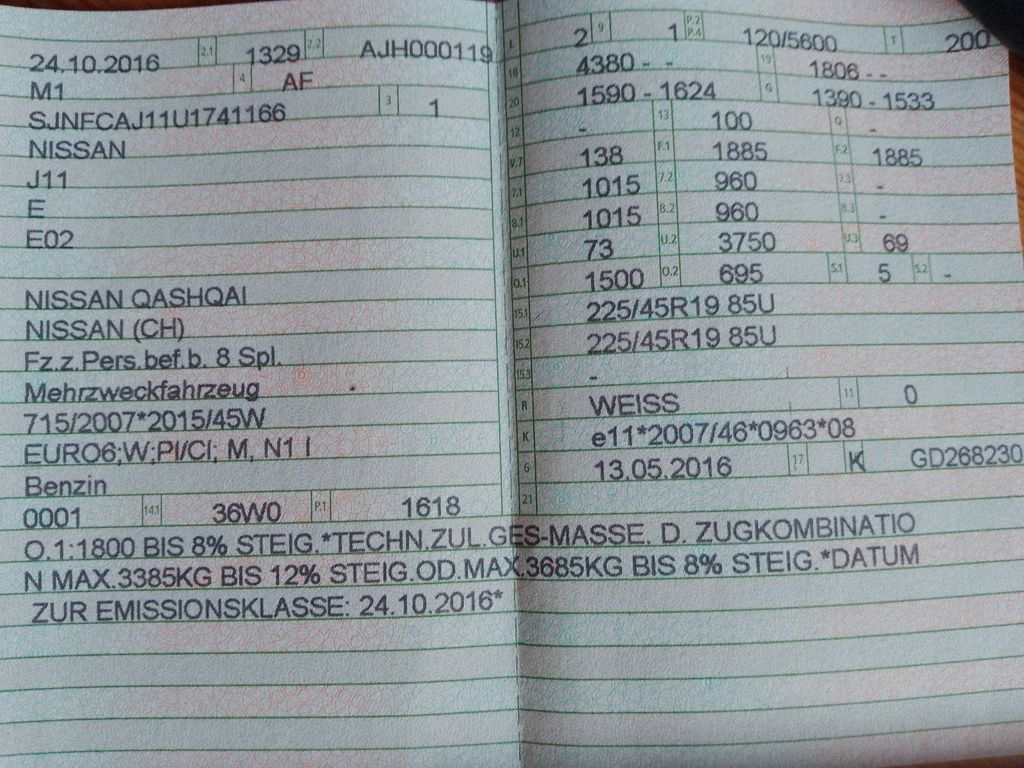 24.10.2016 2.1 1329 2.2 AJH000119
M1 4 AF
SJNFCAJ11U1741166 3 1
NISSAN
J11
E
E02
NISSAN QASHQAI
NISSAN (CH)
Fz.z.Pers.bef.b. 8 Spl.
Mehrzweckfahrzeug
715/2007*2015/45W
EURO6;W;PI/CI; M, N1 I
Benzin
0001 14.1 36W0 P.1 1618
L 2 9 1 P.2 P.4 120/5600 T 200
18 4380 - - 19 1806 - -
20 1590 - 1624 G 1390 - 1533
12 - 13 100 Q -
V.7 138 F.1 1885 F.2 1885
7.1 1015 7.2 960 7.3 -
8.1 1015 8.2 960 8.3 -
U.1 73 U.2 3750 U.3 69
O.1 1500 O.2 695 S.1 5 S.2 -
15.1 225/45R19 85U
15.2 225/45R19 85U
15.3 -
R WEISS 11 0
K e11*2007/46*0963*08
6 13.05.2016 17 K GD268230
21
O.1:1800 BIS 8% STEIG.*TECHN.ZUL.GES-MASSE. D. ZUGKOMBINATIO
N MAX.3385KG BIS 12% STEIG.OD.MAX.3685KG BIS 8% STEIG.*DATUM
ZUR EMISSIONSKLASSE: 24.10.2016*